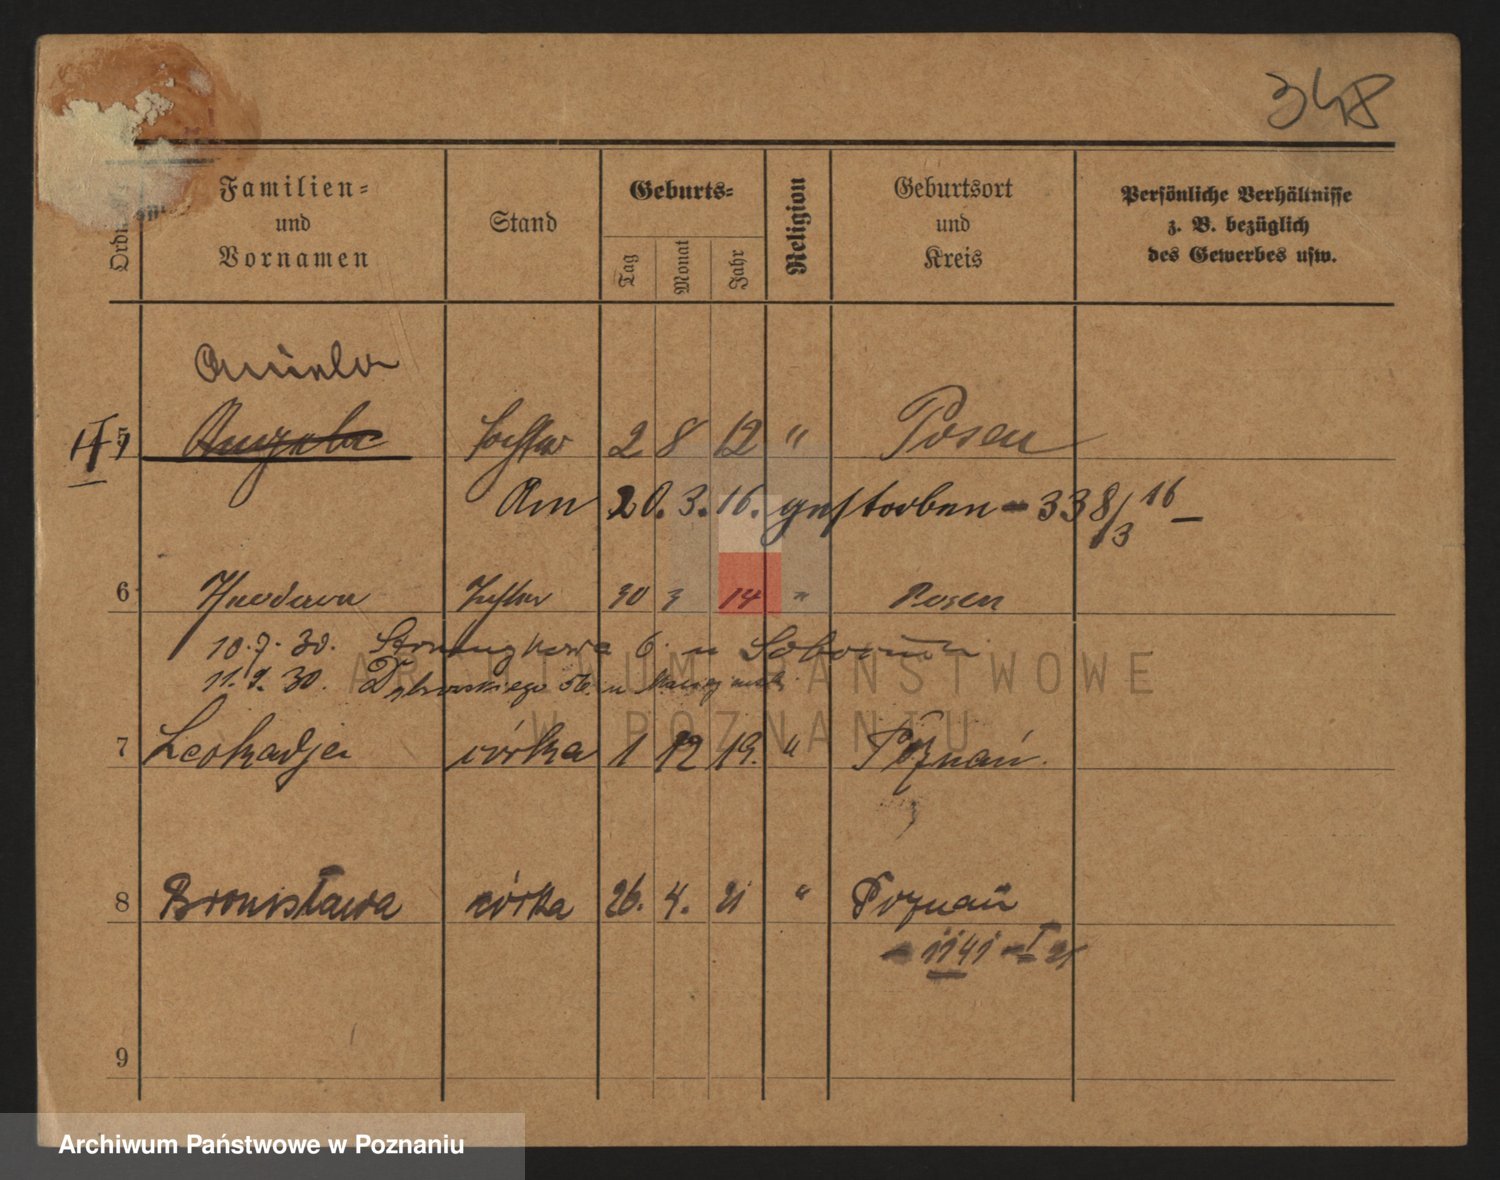 348
Familien= und Vornamen
Stand
Geburts=
Tag
Monat
Jahr
Religion
Geburtsort und Kreis
Persönliche Verhältnisse z. B. bezüglich des Gewerbes usw.
Aniela
5 Angela Tochter 2 8 12 " Posen
Am 20. 3. 16. gestorben - 338/3 16 -
6 Theodora Tochter 30 3 14 " Posen
10.7.30. 6. u
11.9.30. Dąbrowskiego 56. u
7 Leokadja córka 1 12 19. " Poznań.
8 Bronisława córka 26. 4. 21 " Poznań
1141 - I 21
9
ARCHIWUM PAŃSTWOWE
W POZNANIU
Archiwum Państwowe w Poznaniu